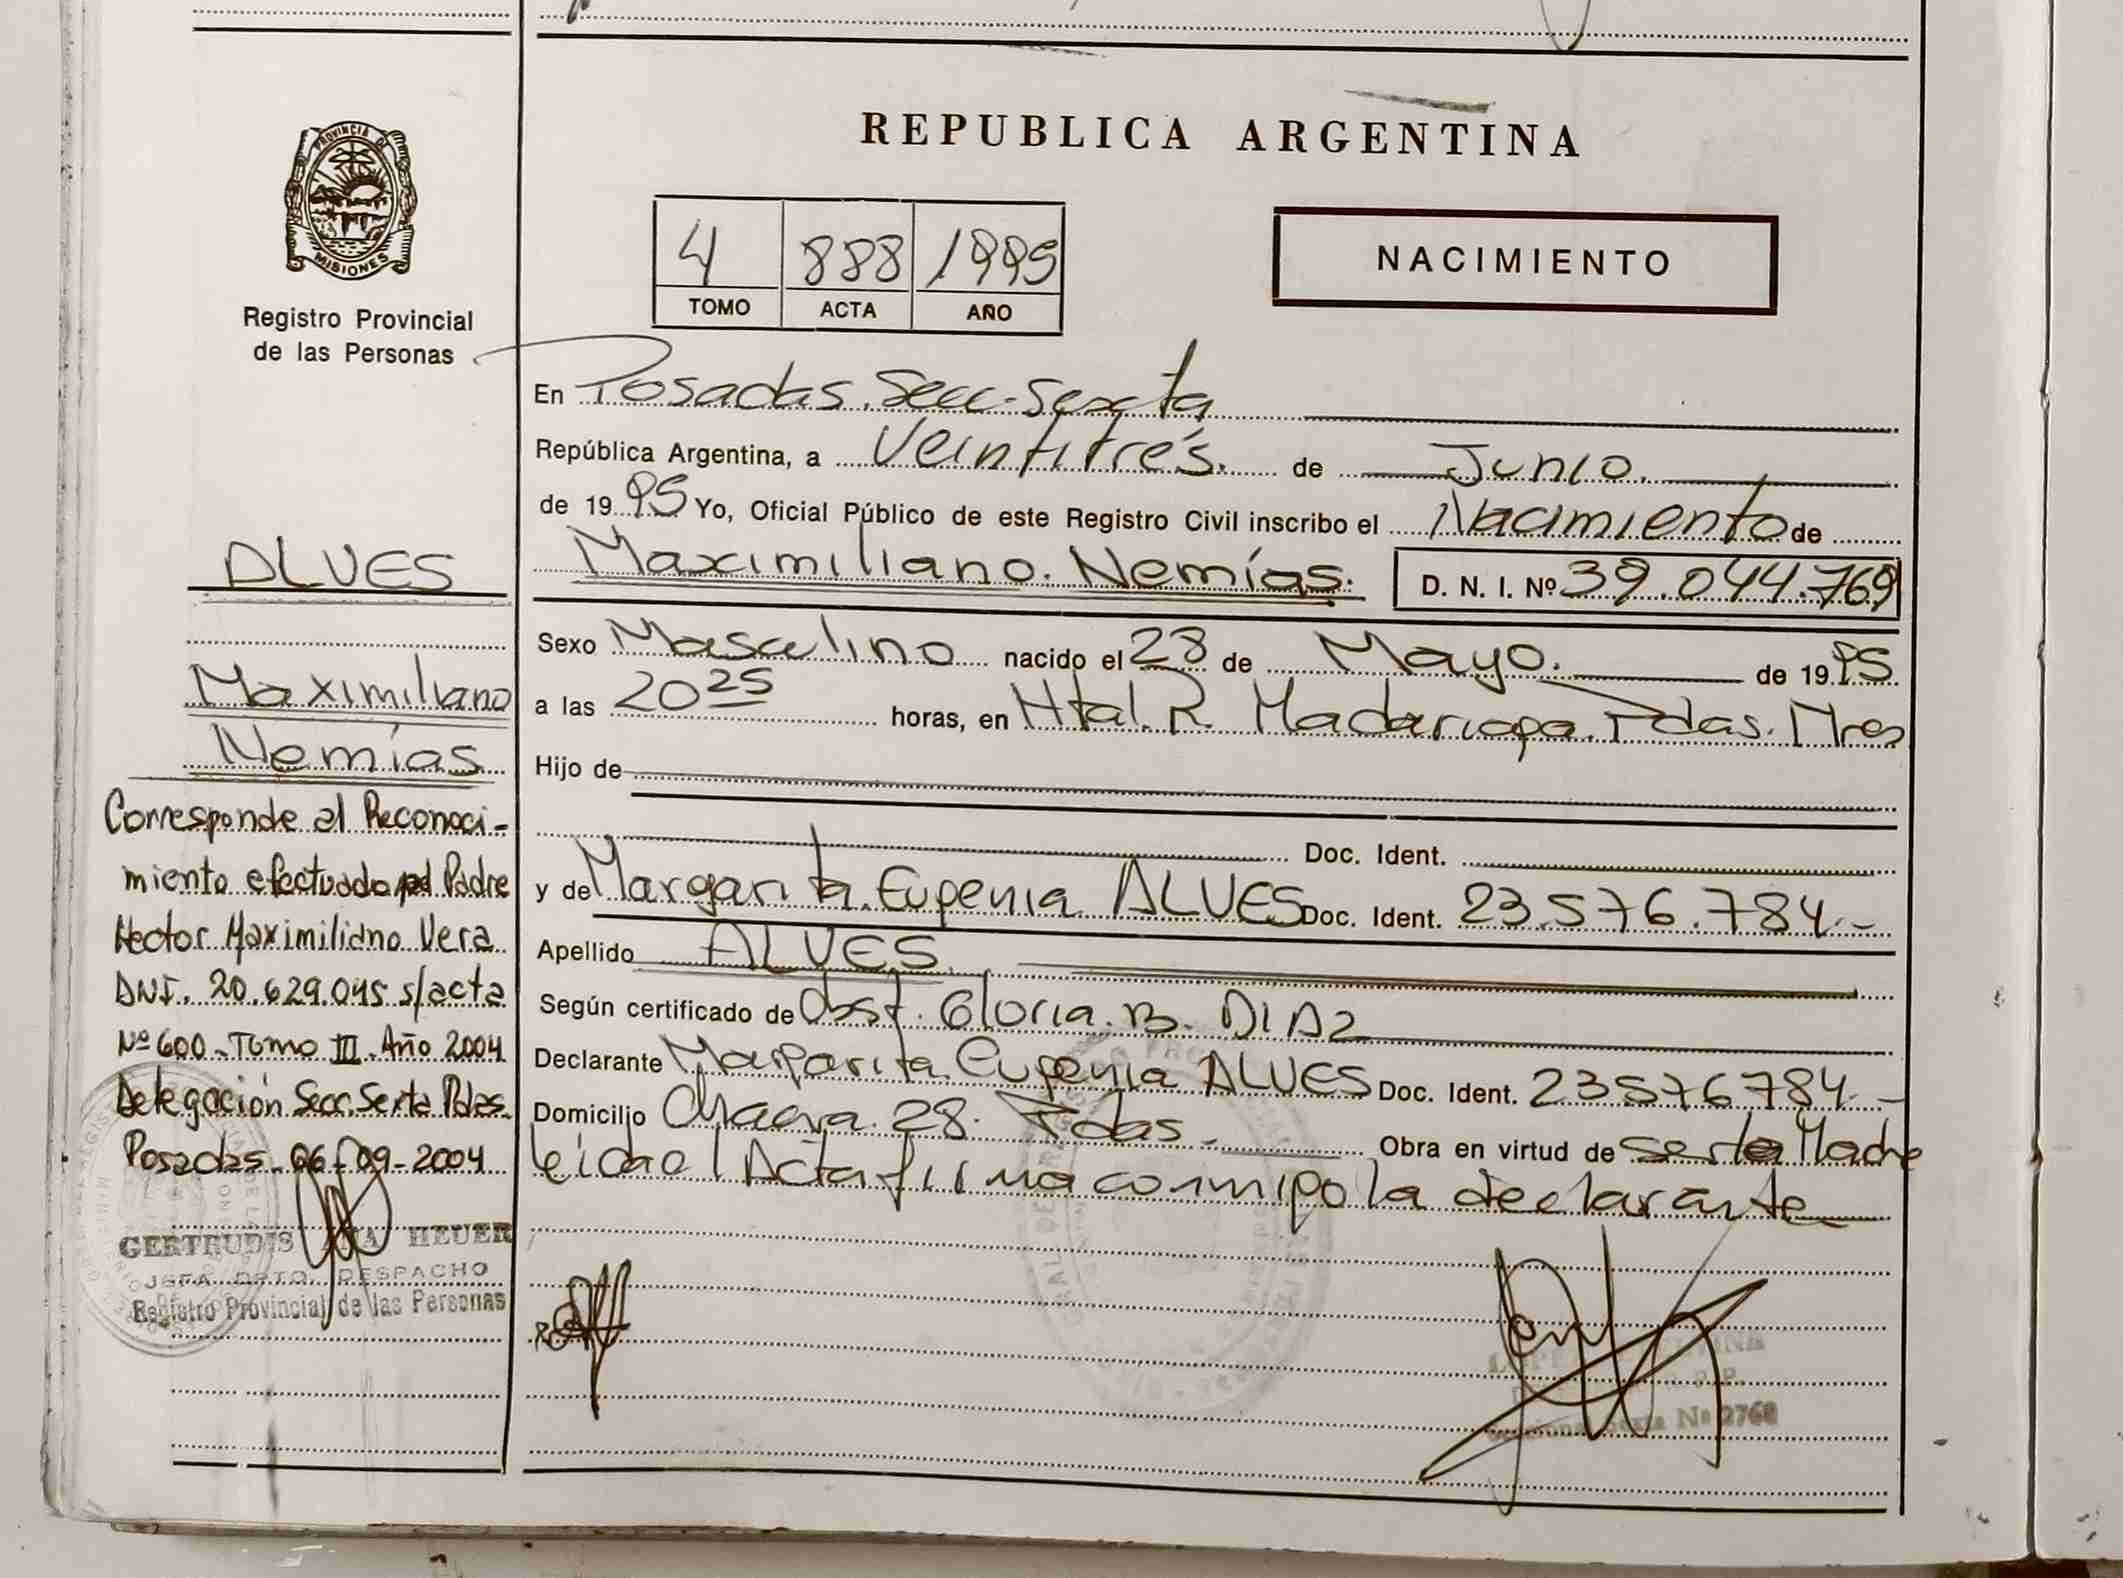 PROVINCIA DE
MISIONES
Registro Provincial
de las Personas
ALVES
Maximiliano
Nemías
Corresponde al Reconoci-
miento efectuado Padre
Hector Maximiliano Vera
DNI. 20.629.045 s/acta
Nº 600 - Tomo III - Año 2004
Delegación Secc. Sexta Pdas.
Posadas - 06-09-2004
GERTRUDIS HEUER
JEFA DPTO. DESPACHO
Registro Provincial de las Personas
REPUBLICA ARGENTINA
4 888 1995
TOMO ACTA AÑO
NACIMIENTO
En Posadas. Secc. Sexta
República Argentina, a Veintitrés. de Junio.
de 1995 Yo, Oficial Público de este Registro Civil inscribo el Nacimiento de
Maximiliano. Nemías. D. N. I. Nº 39.044.769
Sexo Masculino nacido el 28 de Mayo. de 1995
a las 20 25 horas, en Htal. R. Madariaga. Pdas. Mnes
Hijo de
Doc. Ident.
y de Margarita Eugenia ALVES Doc. Ident. 23.576.784.-
Apellido ALVES
Según certificado de Obst. Gloria. B. DIAZ
Declarante Margarita Eugenia ALVES Doc. Ident. 23576784.-
Domicilio Chacra 28. Pdas. Obra en virtud de ser la Madre
leida el Acta firma conmigo la declarante
Nº 2760